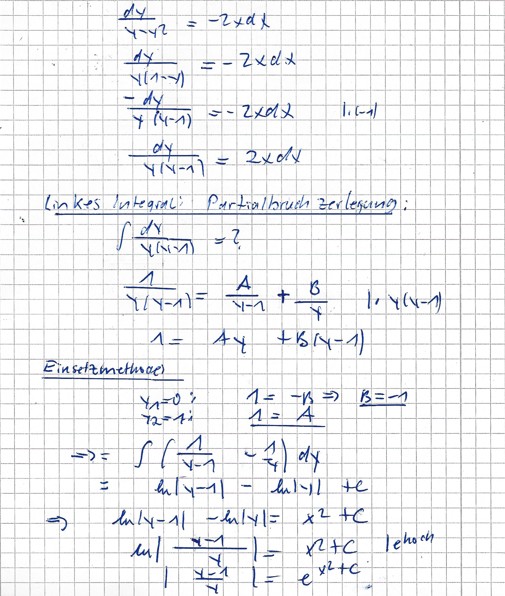 dy/(y-y²) = -2xdx
dy/(y(1-y)) = -2xdx
-dy/(y(y-1)) = -2xdx |·(-1)
dy/(y(y-1)) = 2xdx
Linkes Integral: Partialbruchzerlegung:
∫ dy/(y(y-1)) = ?
1/(y(y-1)) = A/(y-1) + B/y |· y(y-1)
1 = Ay + B(y-1)
Einsetzmethode
y1=0: 1 = -B => B=-1
y2=1: 1 = A
=> = ∫ (1/(y-1) - 1/y) dy
= ln|y-1| - ln|y| +C
=> ln|y-1| - ln|y| = x² +C
ln|(y-1)/y| = x²+C |ehoch
|(y-1)/y| = e^(x²+C)